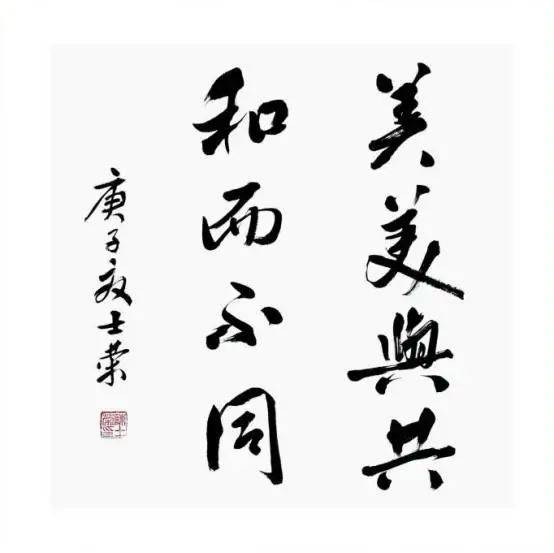 美美與共
和而不同
庚子敬士榮